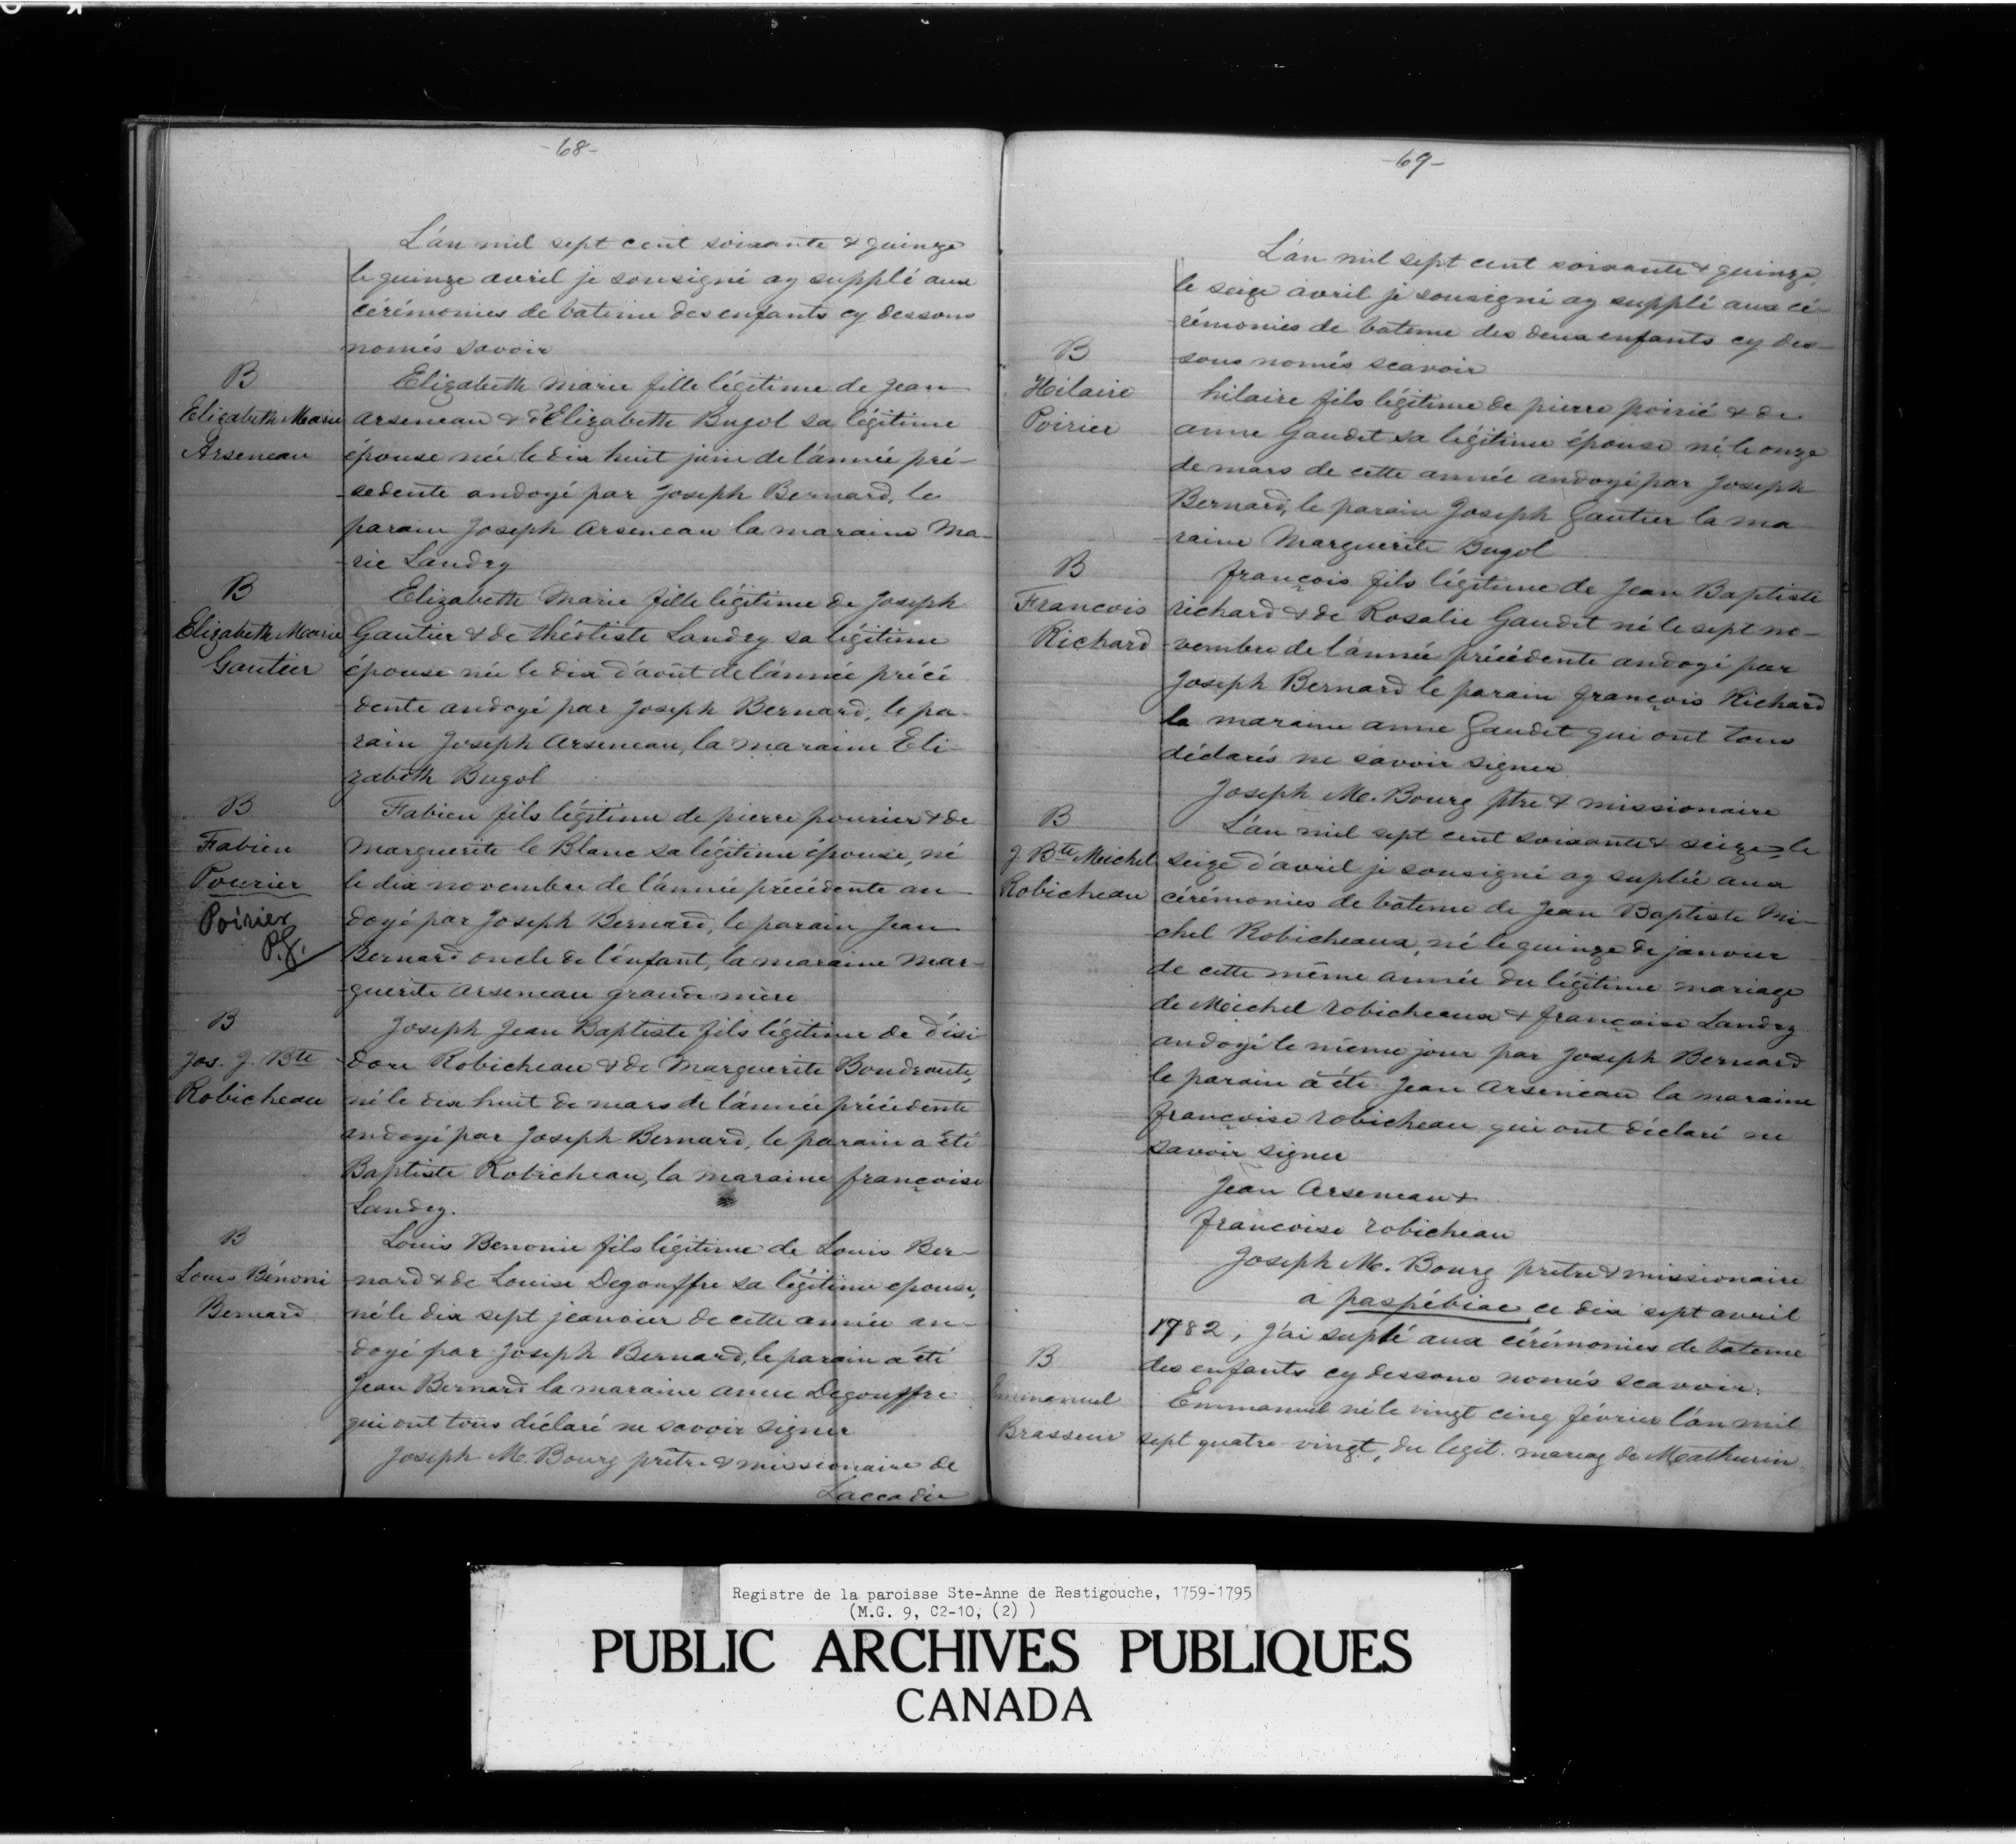 -68-
L'an mil sept cent soixante & quinze
le quinze avril je sousigné ay supplé aux
cérémonies de bateme des enfants cy dessous
només savoir
B
Elizabeth Marie
Arseneau
Elizabeth Marie fille légitime de Jean
Arseneau & d'Elizabeth Bugol sa légitime
épouse née le dix huit juin de l'année pré-
sedente andoyé par Joseph Bernard, le
parain Joseph Arseneau la maraine Ma-
rie Landry
B
Elizabeth Marie
Gautier
Elizabeth Marie fille légitime de Joseph
Gautier & de théotiste Landry sa légitime
épouse née le dix d'août de l'année précé
dente andoyé par Joseph Bernard, le pa-
rain Joseph Arseneau, la maraine Eli-
zabeth Bugol
B
Fabien
Pourier
Poirier
P.G.
Fabien fils légitime de pierre pourier & de
Marguerite le Blanc sa légitime épouse, né
le dix novembre de l'année précédente an-
doyé par Joseph Bernard, le parain Jean
Bernard oncle de l'enfant, la maraine Mar-
guerite Arseneau grande mère
B
Jos. J. Bte
Robicheau
Joseph Jean Baptiste fils légitime de d'isi
dore Robicheau & de Marguerite Boudraute,
né le dix huit de mars de l'année précédente
andoyé par Joseph Bernard, le parain a été
Baptiste Robicheau, la maraine françoise
Landry.
B
Louis Bénoni
Bernard
Louis Benonie fils légitime de Louis Ber-
nard & de Louise Degouffre sa légitime epouse,
né le dix sept jeanvier de cette année an-
doyé par Joseph Bernard, le parain a été
Jean Bernard la maraine anne Degouffre
qui ont tous déclaré ne savoir signer
Joseph M. Bourg prêtre & missionaire de
Laccadie
-69-
L'an mil sept cent soixante & quinze,
le seize avril je sousigné ay supplé aux cé-
rémonies de bateme des deux enfants cy des-
sous només scavoir
B
Hilaire
Poirier
hilaire fils légitime de pierre poirié & de
anne Gaudet sa légitime épouse né le onze
de mars de cette année andoyé par Joseph
Bernard, le parain Joseph Gautier la ma
raine Marguerite Bugol
B
Francois
Richard
françois fils légitime de Jean Baptiste
richard & de Rosalie Gaudet né le sept no-
vembre de l'année précédente andoyé par
Joseph Bernard le parain françois Richard
la maraine anne Gaudet qui ont tous
déclarés ne savoir signer
Joseph M. Bourg ptre & missionaire
B
J. Bte Michel
Robicheau
L'an mil sept cent soixante & seize, le
seize d'avril je sousigné ay suplée aux
cérémonies de bateme de Jean Baptiste Mi-
chel Robicheaux, né le quinze de janvier
de cette même année du légitime mariage
de Michel robicheaux & françoise Landry
andoyé le même jour par Joseph Bernard
le parain a été Jean Arseneau la maraine
françoise robicheau qui ont déclaré ne
savoir signer
Jean Arseneau &
françoise robicheau
Joseph M. Bourg pretre & missionaire
a paspébiac ce dix sept avril
1782, j'ai suplé aux cérémonies de bateme
des enfants cy dessous només scavoir.
B
Emmanuel
Brasseur
Emmanuel né le vingt cinq février l'an mil
sept quatre-vingt, du legit. mariag de Mathurin
Registre de la paroisse Ste-Anne de Restigouche, 1759-1795
(M.G. 9, C2-10, (2) )
PUBLIC ARCHIVES PUBLIQUES
CANADA